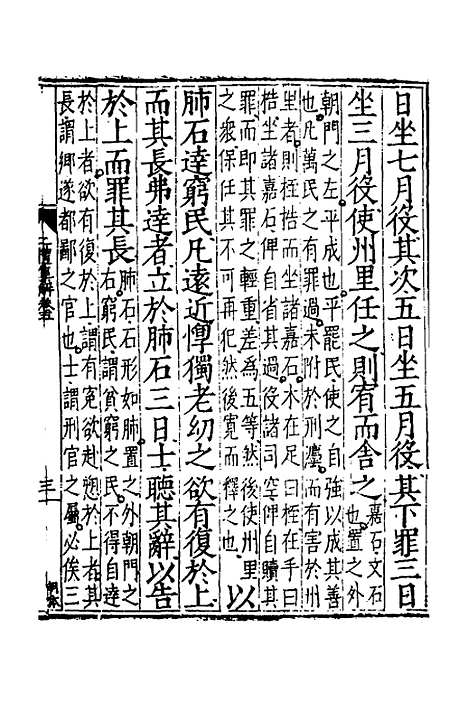 日坐七月役其次五日坐五月役其下罪三日
坐三月役使州里任之則宥而舍之
嘉石文石
也置之外
朝門之左平成也平罷民使之自強以成其善
也凡萬民之有罪過未附於刑灋而有害於州
里者則桎梏而坐諸嘉石木在足曰桎在手曰
梏坐諸嘉石俾自省其過役諸司空俾自贖其
罪而即其罪之輕重差為五等然後使州里
之衆保任其不可再犯然後寛而釋之也
以
肺石達窮民凡遠近惸獨老幼之欲有復於上
而其長弗達者立於肺石三日士聽其辭以告
於上而罪其長
肺石石形如肺置之外朝門之
右窮民謂貧窮之民不得自達
於上者欲有復於上謂有寃欲赴愬於上者其
長謂鄉遂都鄙之官也士謂刑官之屬必俟三